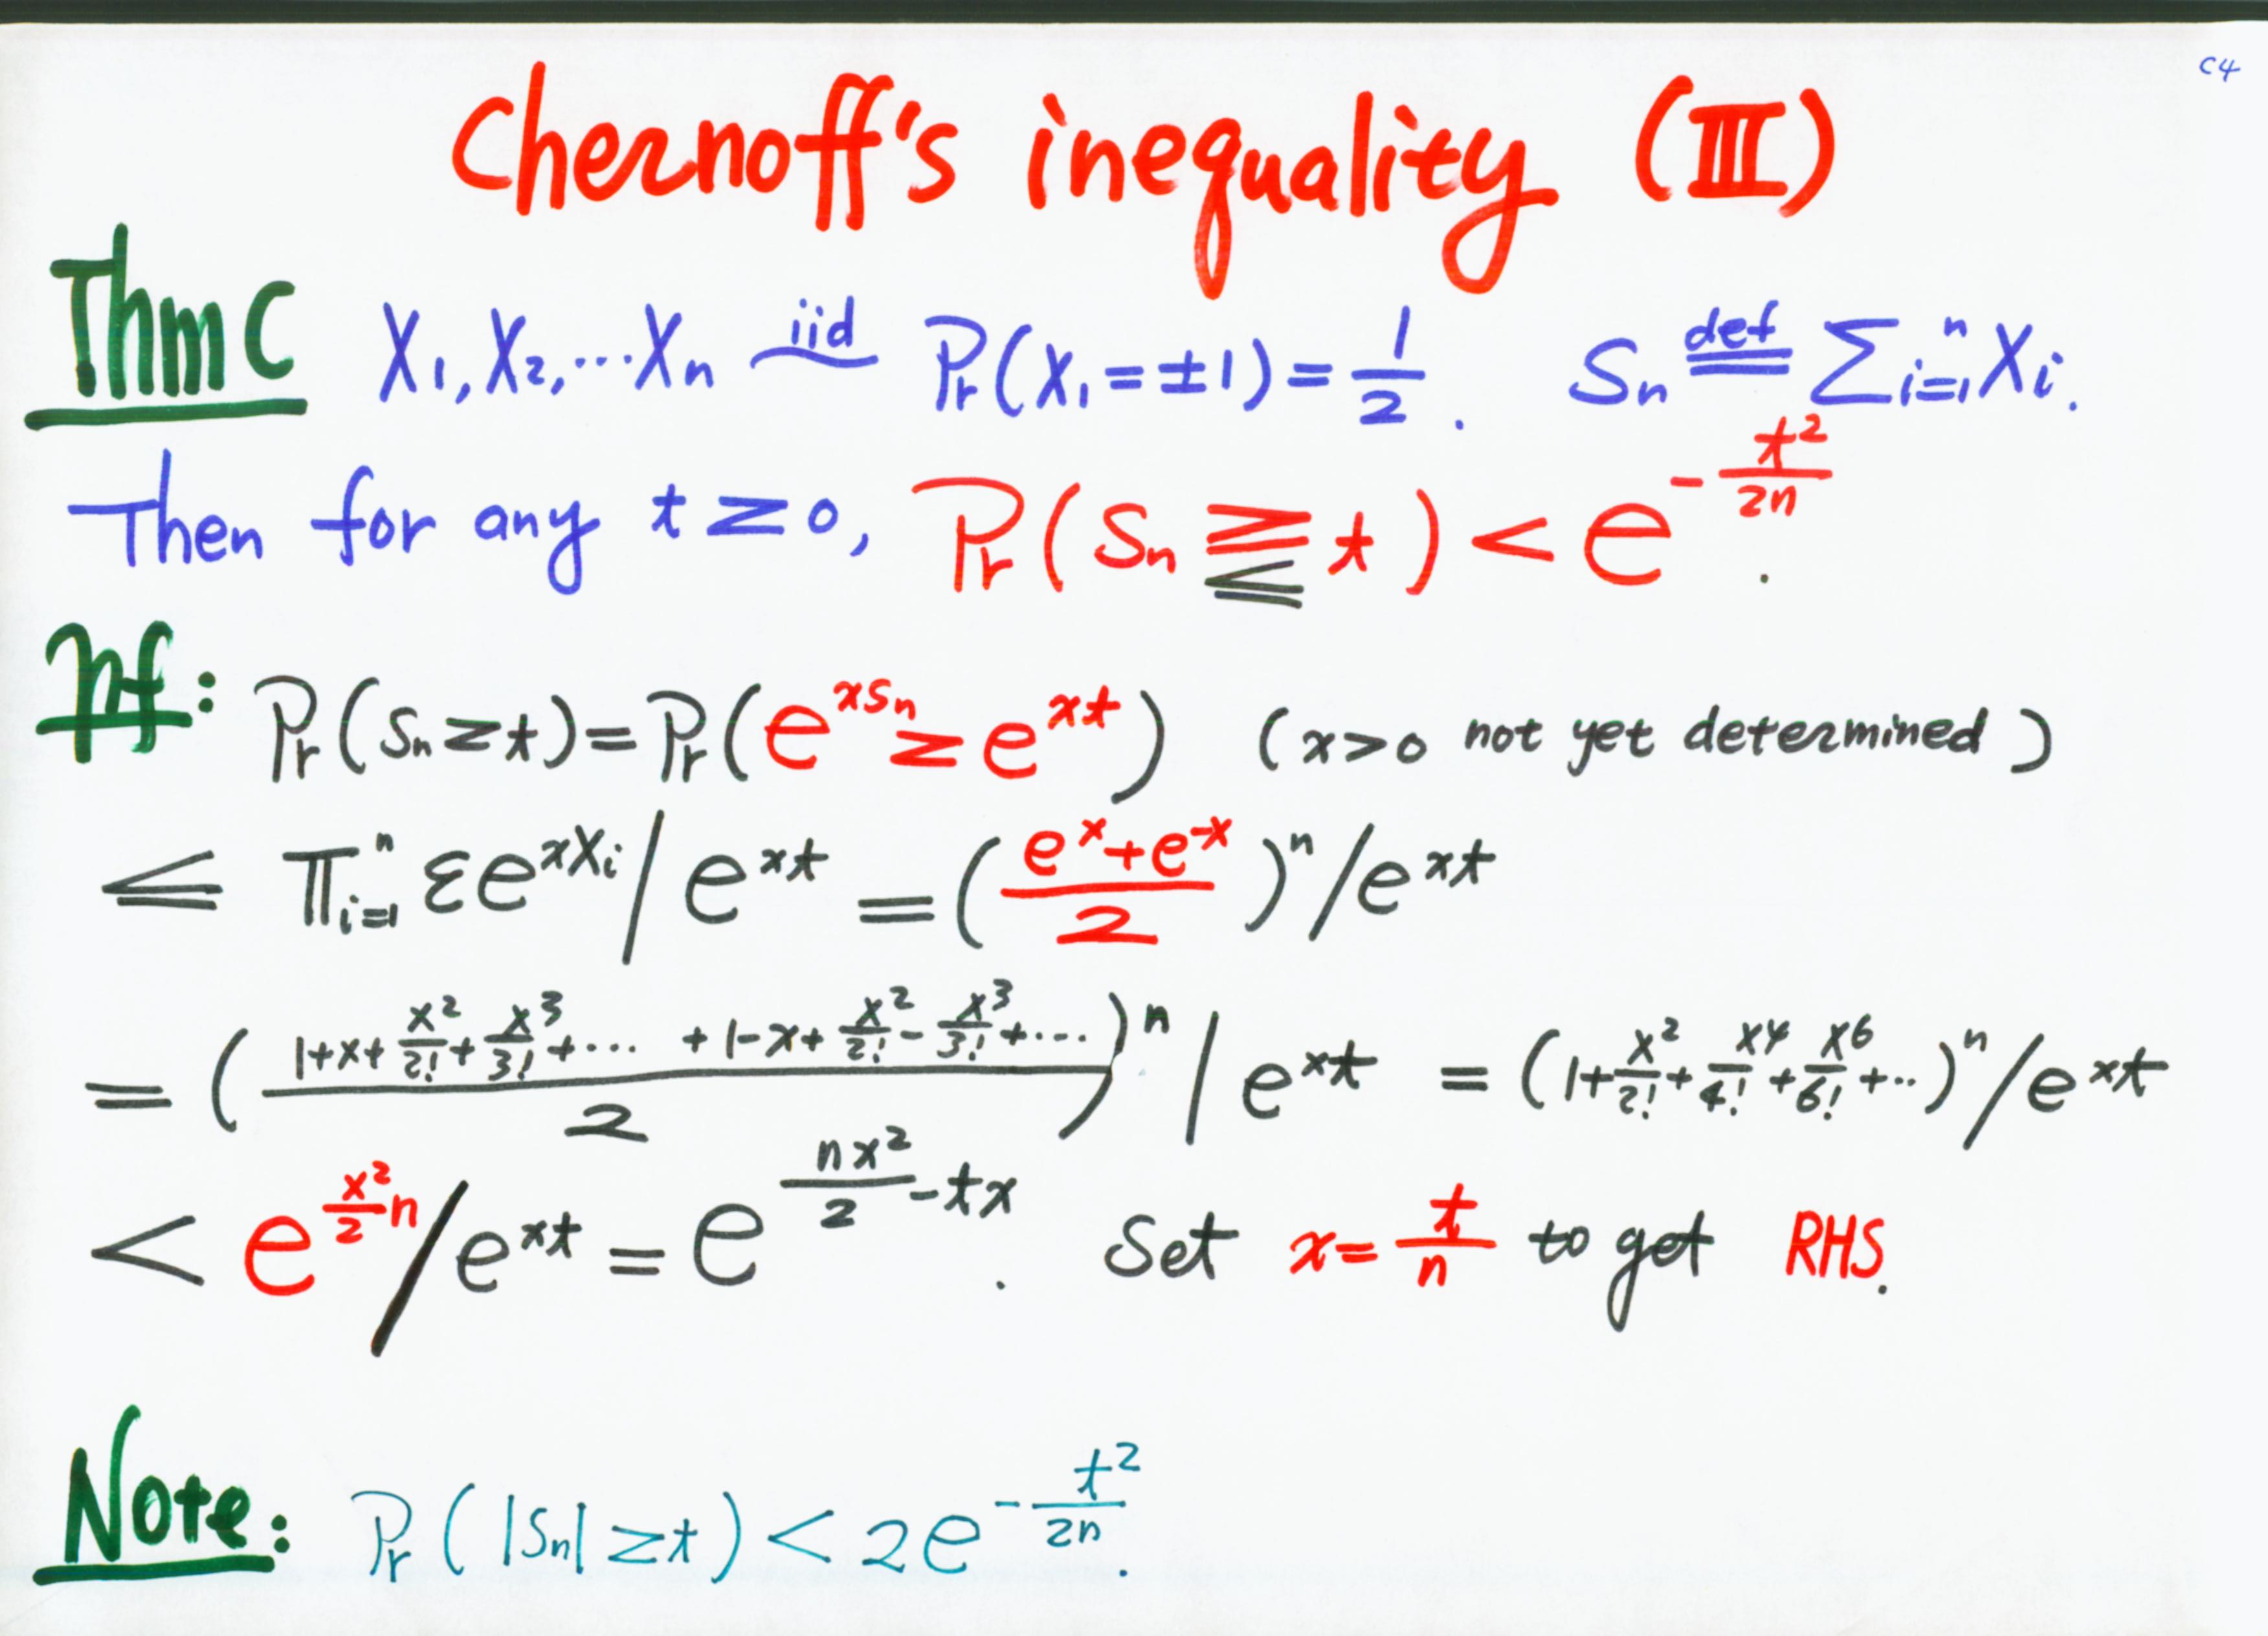 C4
Chernoff's inequality (III)
Thm C X₁, X₂, ⋯ Xₙ ~ⁱⁱᵈ Pr(X₁ = ±1) = 1/2 . Sₙ ≝ Σᵢ₌₁ⁿ Xᵢ.
Then for any t ≥ 0, Pr(Sₙ ≥ ≤ t) < e^(-t²/2n).
pf: Pr(Sₙ ≥ t) = Pr(e^(xSₙ) ≥ e^(xt)) (x>0 not yet determined)
≤ Πᵢ₌₁ⁿ Ɛe^(xXᵢ) / e^(xt) = ((eˣ+e⁻ˣ)/2)ⁿ / e^(xt)
= ((1+x+x²/2!+x³/3!+⋯ +1-x+x²/2!-x³/3!+⋯)/2)ⁿ / e^(xt) = (1+x²/2!+x⁴/4!+x⁶/6!+..)ⁿ / e^(xt)
< e^(x²/2 n) / e^(xt) = e^(nx²/2 - tx) . Set x = t/n to get RHS.
Note: Pr(|Sₙ| ≥ t) < 2e^(-t²/2n).